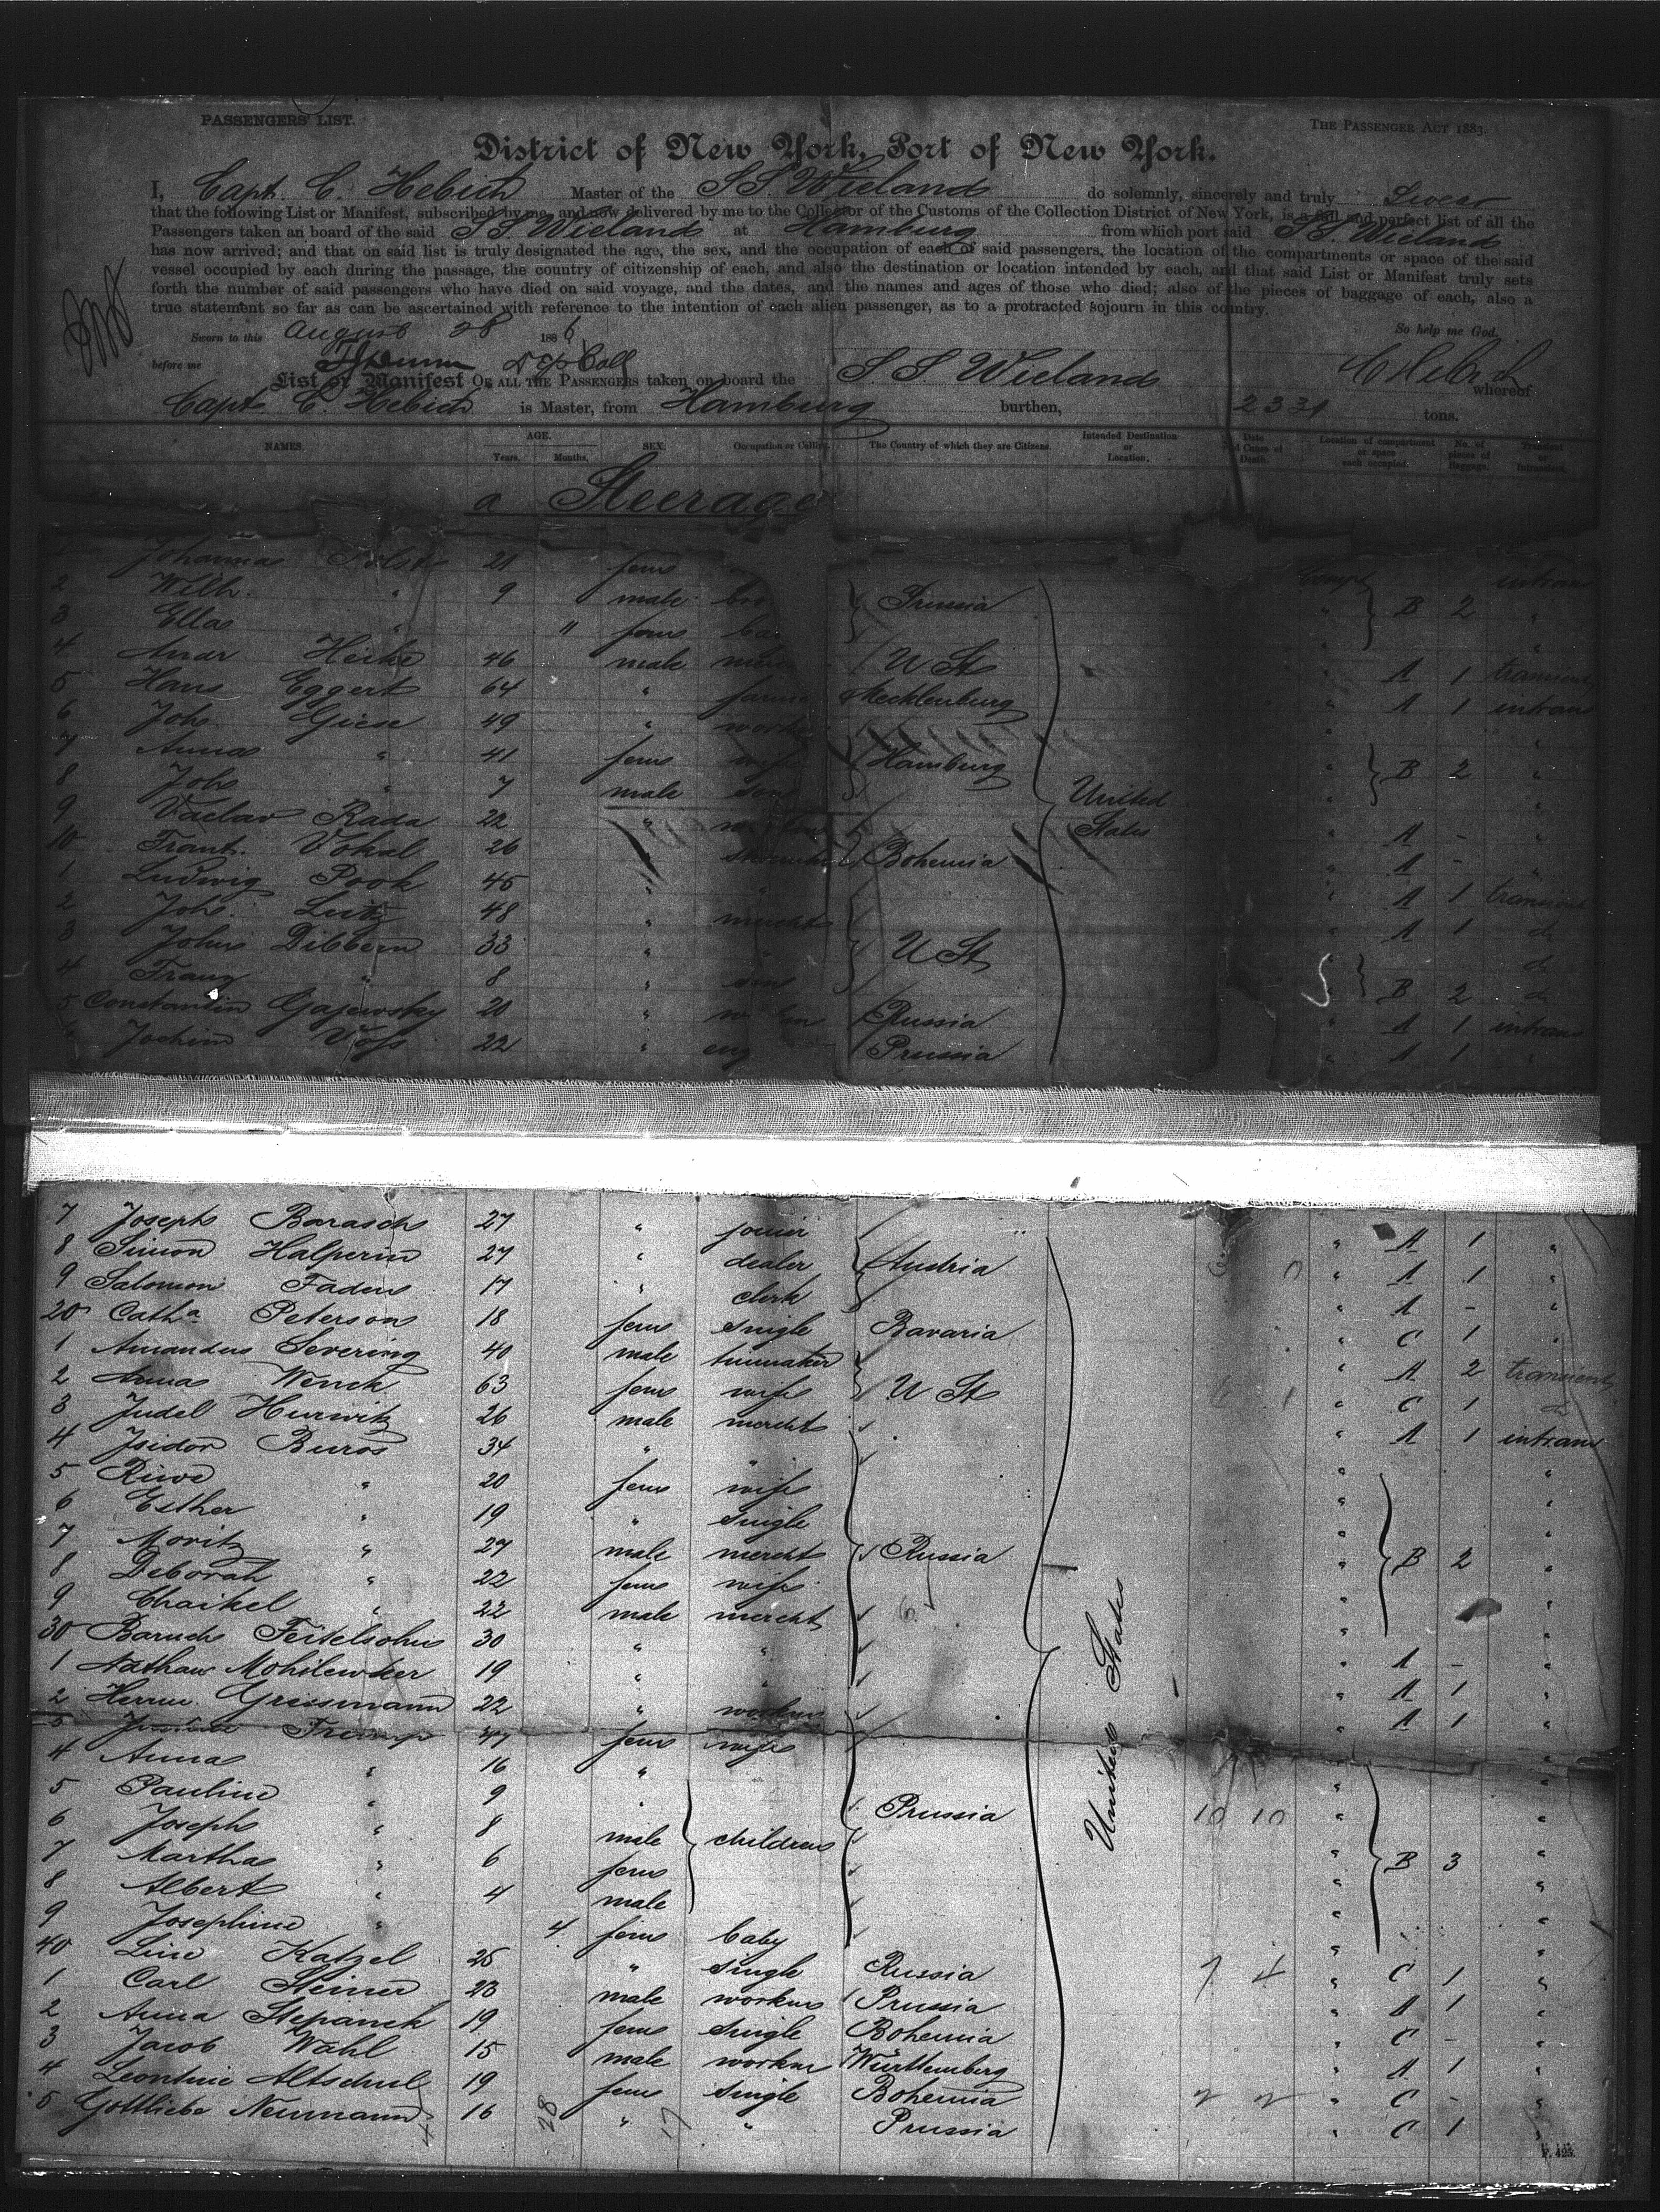 PASSENGERS' LIST.
THE PASSENGER ACT 1883.
District of New York, Port of New York.
I, Capt. C. Hebich Master of the S S Wieland do solemnly, sincerely and truly Swear
that the following List or Manifest, subscribed by me, and now delivered by me to the Collector of the Customs of the Collection District of New York, is a full and perfect list of all the
Passengers taken on board of the said S S Wieland at Hamburg from which port said S S. Wieland
has now arrived; and that on said list is truly designated the age, the sex, and the occupation of each of said passengers, the location of the compartments or space of the said
vessel occupied by each during the passage, the country of citizenship of each, and also the destination or location intended by each, and that said List or Manifest truly sets
forth the number of said passengers who have died on said voyage, and the dates, and the names and ages of those who died; also of the pieces of baggage of each, also a
true statement so far as can be ascertained with reference to the intention of each alien passenger, as to a protracted sojourn in this country.
Sworn to this August 28 1886 So help me God,
before me Dep Coll C Hebich
List or Manifest OF ALL THE PASSENGERS taken on board the S. S. Wieland whereof
Capt. C. Hebich is Master, from Hamburg burthen, 2331 tons.
NAMES. AGE. Years. Months. SEX. Occupation or Calling. The Country of which they are Citizens. Intended Destination or Location. Date and Cause of Death. Location of compartment or space each occupied. No. of pieces of Baggage. Transient or Intransient.
a Steerage
Johanna 21 fem intrans
2 Wilh. " 9 male Prussia " B 2 "
3 Ella " 11 fem
4 Heike 46 male U St A 1 transient
5 Hans Eggert 64 " Mecklenburg " A 1 intrans
6 Joh. Giese 49 "
7 Anna " 41 fem Hamburg " B 2 "
8 Joh. " 7 male son United
9 Vaclav Rada 22 " States " A - "
10 Frant. Vokal 26 Bohemia " A - "
1 Ludwig Pook 45 " " " A 1 transient
2 Joh. Lutz 48 " mercht " A 1 do
3 John Dibbern 33 " " U St do
4 Franz " 8 " son " B 2 do
5 Constantin Gajewsky 20 " Russia " A 1 intrans
Jochim Voss 22 " Prussia " A 1 "
7 Joseph Barasch 27 " joiner " A 1 "
8 Simon Halperin 27 " dealer Austria " A 1 "
9 Salomon Faden 17 " clerk " A - "
20 Catha. Peterson 18 fem single Bavaria " C 1 "
1 Amandus Severing 40 male " A 2 transient
2 Anna Wenck 63 fem wife U St " C 1 do
3 Judel Hurwitz 26 male mercht " A 1 intrans
4 Isidor Buros 34 " " " "
5 Riwe " 20 fem wife " "
6 Esther " 19 " single " "
7 Moritz " 27 male mercht Russia " B 2 "
8 Deborah " 22 fem wife " "
9 Chaikel " 22 male mercht " "
30 Baruch Feitelsohn 30 " " " A - "
1 Nathan Mohilewker 19 " " " A 1 "
2 Herm. Griesmann 22 " workm " A 1 "
3 47 fem wife "
4 Anna " 16 " " "
5 Pauline " 9 " Prussia 10 10 " "
6 Joseph " 8 male children " "
7 Martha " 6 fem " B 3 "
8 Albert " 4 male " "
9 Josephine " 4 fem baby " "
40 Line Katzel 25 " single Russia 7 4 " C 1 "
1 Carl Steiner 23 male workm Prussia " A 1 "
2 Anna Stepanek 19 fem single Bohemia " C - "
3 Jacob Wahl 15 male workm Württemberg " A 1 "
4 Leontine Altschul 19 fem single Bohemia 2 2 " C - "
5 Gottliebe Neumann 16 " " Prussia " C 1 "
United States